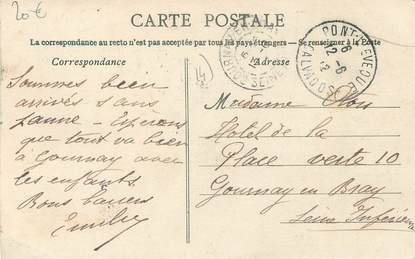 20€
CARTE POSTALE
La correspondance au recto n'est pas acceptée par tous les pays étrangers — Se renseigner à la Poste
Correspondance
Adresse
14
PONT-L'EVEQUE
12-6
12
CALVADOS
Sommes bien
arrivés sans
panne - Espérons
que tout va bien
à Gournay avec
les enfants.
Bons baisers
Madame
Hotel de la
Place verte 10
Gournay en Bray
Seine Inférieure